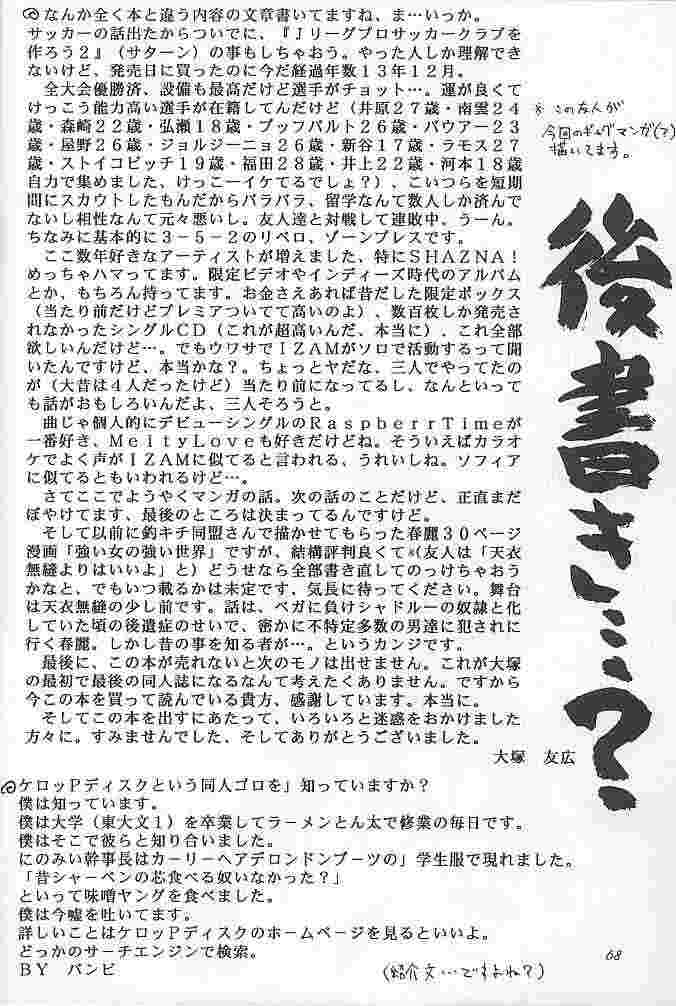 なんか全く本と違う内容の文章書いてますね、ま…いっか。
サッカーの話出たからついでに、『Ｊリーグプロサッカークラブを
作ろう２』（サターン）の事もしちゃおう。やった人しか理解でき
ないけど、発売日に買ったのに今だ経過年数１３年１２月。
全大会優勝済、設備も最高だけど選手がチョット…。運が良くて
けっこう能力高い選手が在籍してんだけど（井原２７歳・南雲２４
歳・森崎２２歳・弘瀬１８歳・ブッフバルト２６歳・バウアー２３
歳・屋野２６歳・ジョルジーニョ２６歳・新谷１７歳・ラモス２７
歳・ストイコビッチ１９歳・福田２８歳・井上２２歳・河本１８歳
自力で集めました、けっこーイケてるでしょ？）、こいつらを短期
間にスカウトしたもんだからバラバラ、留学なんて数人しか済んで
ないし相性なんて元々悪いし。友人達と対戦して連敗中、うーん。
ちなみに基本的に３－５－２のリベロ、ゾーンプレスです。
ここ数年好きなアーティストが増えました、特にＳＨＡＺＮＡ！
めっちゃハマってます。限定ビデオやインディーズ時代のアルバム
とか、もちろん持ってます。お金さえあれば昔だした限定ボックス
（当たり前だけどプレミアついてて高いのよ）、数百枚しか発売さ
れなかったシングルＣＤ（これが超高いんだ、本当に）、これ全部
欲しいんだけど…。でもウワサでＩＺＡＭがソロで活動するって聞
いたんですけど、本当かな？。ちょっとヤだな、三人でやってたの
が（大昔は４人だったけど）当たり前になってるし、なんといって
も話がおもしろいんだよ、三人そろうと。
曲じゃ個人的にデビューシングルのＲａｓｐｂｅｒｒＴｉｍｅが
一番好き、ＭｅｌｔｙＬｏｖｅも好きだけどね。そういえばカラオ
ケでよく声がＩＺＡＭに似てると言われる、うれいしね。ソフィア
に似てるともいわれるけど…。
さてここでようやくマンガの話。次の話のことだけど、正直まだ
ぼやけてます、最後のところは決まってるんですけど。
そして以前に釣キチ同盟さんで描かせてもらった春麗３０ページ
漫画「強い女の強い世界」ですが、結構評判良くて※（友人は「天衣
無縫よりはいいよ」と）どうせなら全部書き直してのっけちゃおう
かなと、でもいつ載るかは未定です、気長に待ってください。舞台
は天衣無縫の少し前です。話は、ベガに負けシャドルーの奴隷と化
していた頃の後遺症のせいで、密かに不特定多数の男達に犯されに
行く春麗。しかし昔の事を知る者が…。というカンジです。
最後に、この本が売れないと次のモノは出せません。これが大塚
の最初で最後の同人誌になるなんて考えたくありません。ですから
今この本を買って読んでいる貴方、感謝しています。本当に。
そしてこの本を出すにあたって、いろいろと迷惑をおかけました
方々に。すみませんでした、そしてありがとうございました。
大塚　友広
※この友人が
今回のギャグマンガ(？)
描いてます。
後書き…？
ケロッＰディスクという同人ゴロを」知っていますか？
僕は知っています。
僕は大学（東大文１）を卒業してラーメンとん太で修業の毎日です。
僕はそこで彼らと知り合いました。
にのみい幹事長はカーリーヘアデロンドンブーツの」学生服で現れました。
「昔シャーペンの芯食べる奴いなかった？」
といって味噌ヤングを食べました。
僕は今嘘を吐いてます。
詳しいことはケロッＰディスクのホームページを見るといいよ。
どっかのサーチエンジンで検索。
ＢＹ　バンビ
（紹介文…ですよね？）
68